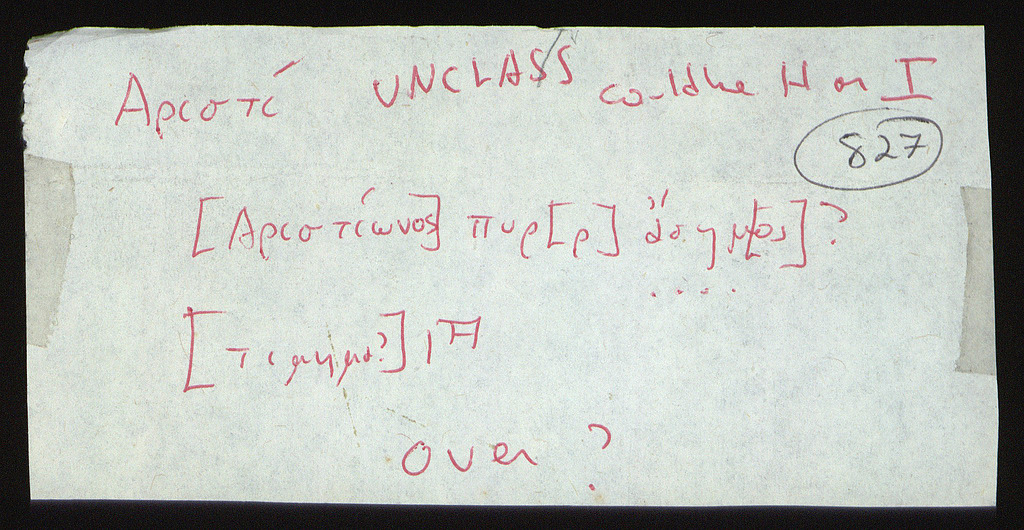 Αριστί UNCLASS could be H or I
827
[Αριστίωνος] πυρ[ρ] ἄσημ[ος]?
[τιμημα?] 
over ?